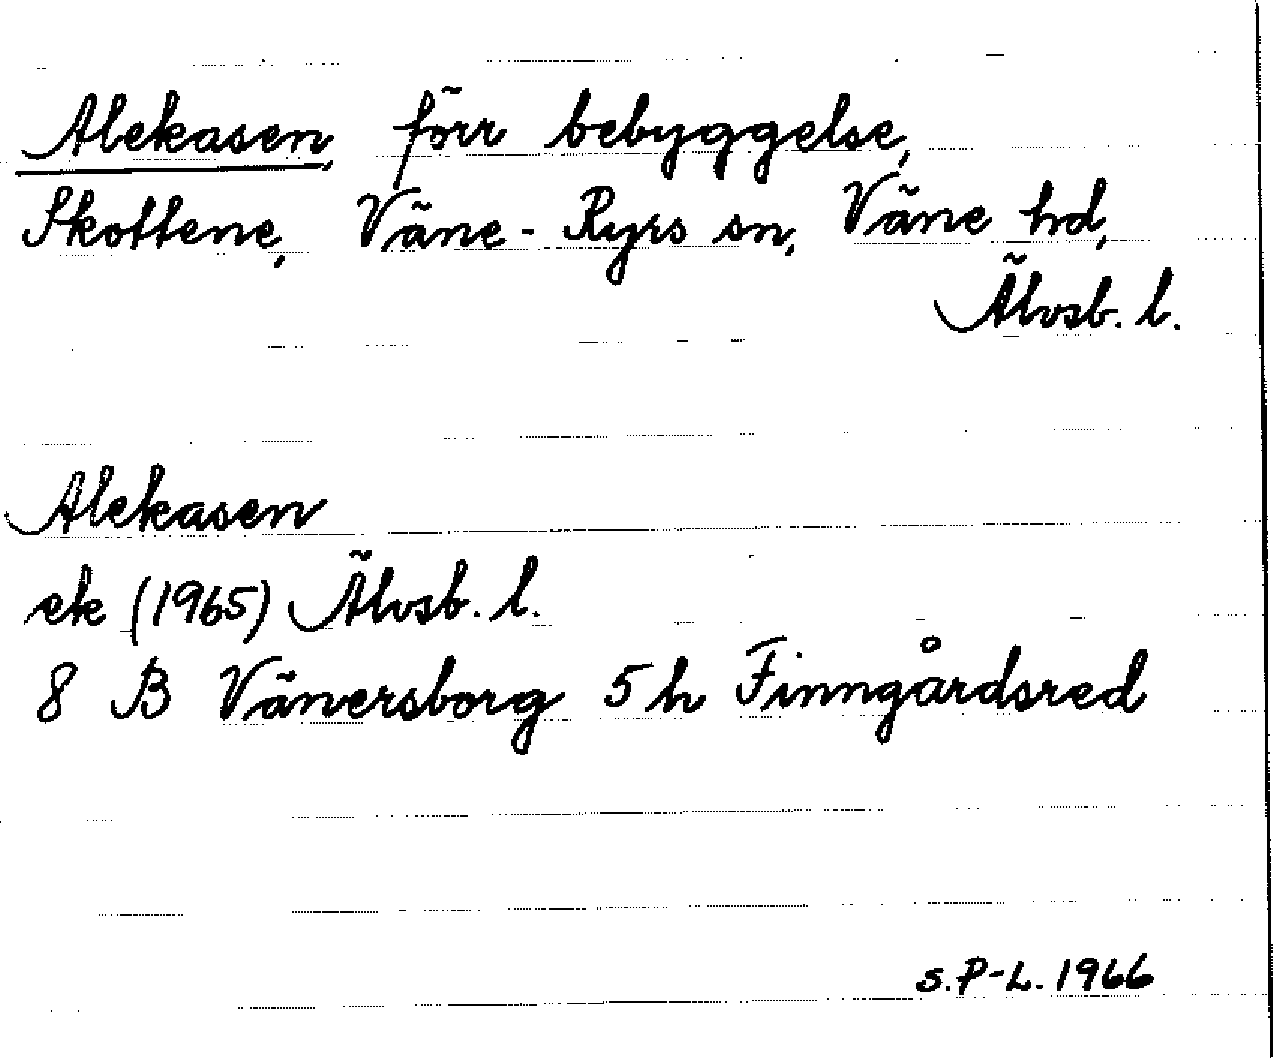 Alekasen, förr bebyggelse,
Skottene, Väne-Ryrs sn, Väne hd,
Älvsb. l.
Alekasen
ek (1965) Älvsb. l.
8 B Vänersborg 5 h Finngårdsred
S.P-L. 1966